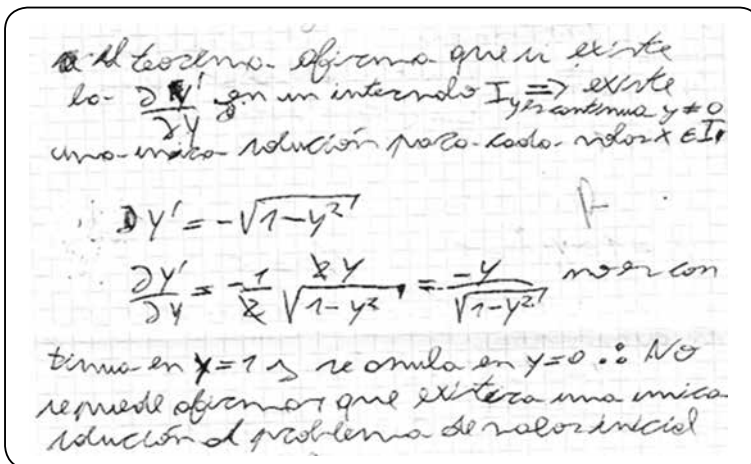 El teorema afirma que si existe
la ∂y'/∂y en un intervalo I y es continua y ≠ 0 ⇒ existe
una unica solución para cada valor x ∈ I,
1) y' = -√(1-y²)
∂y'/∂y = -1/2 2y/√(1-y²) = -y/√(1-y²) no es con
tinua en y=1 y se anula en y=0 ∴ No
se puede afirmar que existira una unica
solución al problema de valor inicial